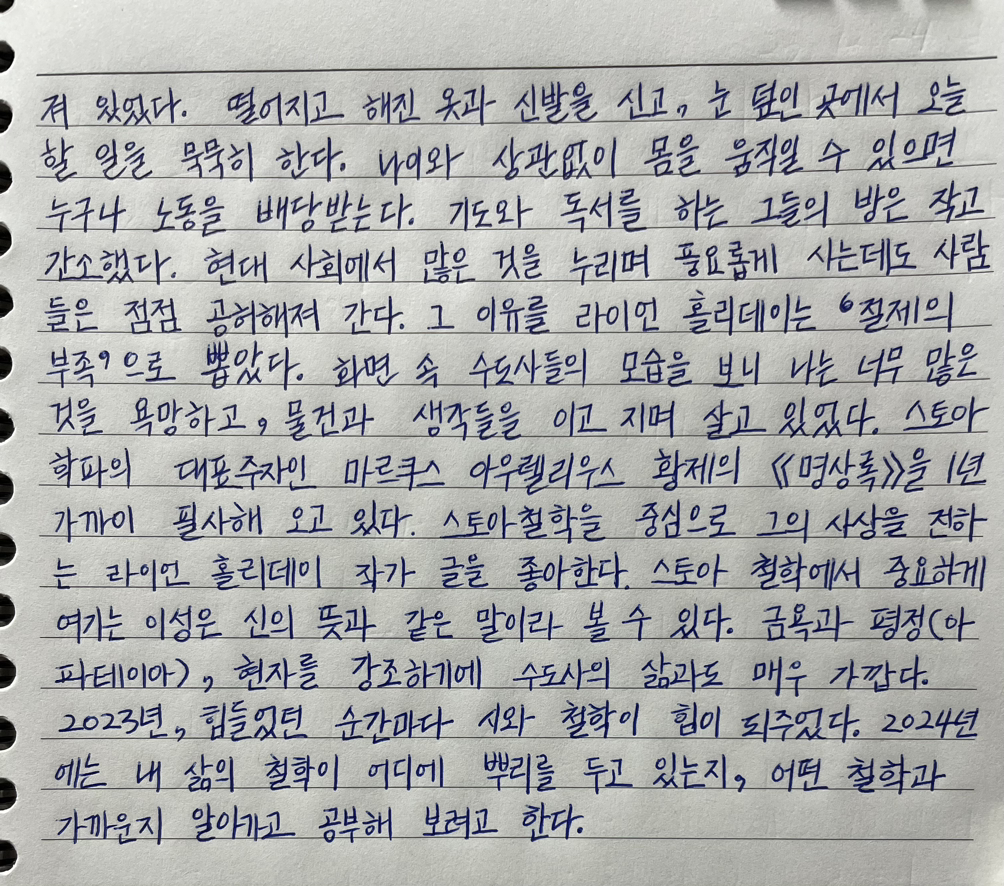 져 있었다. 떨어지고 해진 옷과 신발을 신고, 눈 덮인 곳에서 오늘
할 일을 묵묵히 한다. 나이와 상관없이 몸을 움직일 수 있으면
누구나 노동을 배당받는다. 기도와 독서를 하는 그들의 방은 작고
간소했다. 현대 사회에서 많은 것을 누리며 풍요롭게 사는데도 사람
들은 점점 공허해져 간다. 그 이유를 라이언 홀리데이는 '절제의
부족'으로 뽑았다. 화면 속 수도사들의 모습을 보니 나는 너무 많은
것을 욕망하고, 물건과 생각들을 이고 지며 살고 있었다. 스토아
학파의 대표주자인 마르쿠스 아우렐리우스 황제의 《명상록》을 1년
가까이 필사해 오고 있다. 스토아철학을 중심으로 그의 사상을 전하
는 라이언 홀리데이 작가 글을 좋아한다. 스토아 철학에서 중요하게
여기는 이성은 신의 뜻과 같은 말이라 볼 수 있다. 금욕과 평정(아
파테이아), 현자를 강조하기에 수도사의 삶과도 매우 가깝다.
2023년, 힘들었던 순간마다 시와 철학이 힘이 되주었다. 2024년
에는 내 삶의 철학이 어디에 뿌리를 두고 있는지, 어떤 철학과
가까운지 알아가고 공부해 보려고 한다.